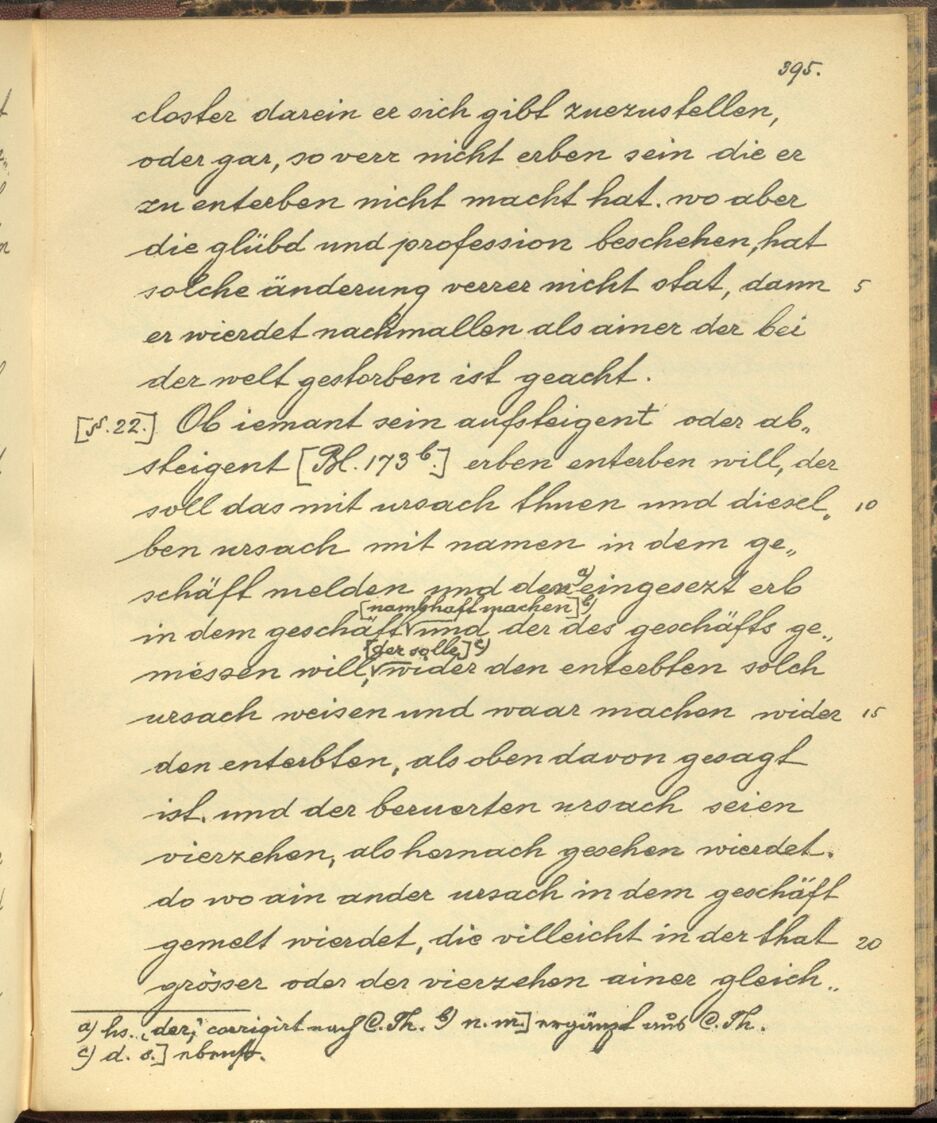 395.
closter darein er sich gibt zuezustellen,
oder gar, so verr nicht erben sein die er
zu enterben nicht macht hat. wo aber
die glübd und profession beschehen, hat
solche änderung verrer nicht stat, dann 5
er wierdet nachmallen als ainer der bei
der welt gestorben ist geacht.
[§. 22.] Ob iemant sein aufsteigent oder ab„
steigent [Bl. 173 b.] erben enterben will, der
soll das mit ursach thuen und diesel„ 10
ben ursach mit namen in dem ge„
schäft melden und den a) eingesezt erb
[namhaft machen] b)
in dem geschäft √ und der des geschäfts ge„
[der solle] c)
niessen will, √ wider den enterbten solch
ursach weisen und waar machen wider 15
den enterbten, als oben davon gesagt
ist. und der beruerten ursach seien
vierzehen, als hernach gesehen wierdet.
do wo ain ander ursach in dem geschäft
gemelt wierdet, die villeicht in der that 20
grösser oder der vierzehen ainer gleich„
a) hs. ‚der,‘ corrigirt nach C. Th. b) n. m.] ergänzt aus C. Th.
c) d. s.] ebenso.